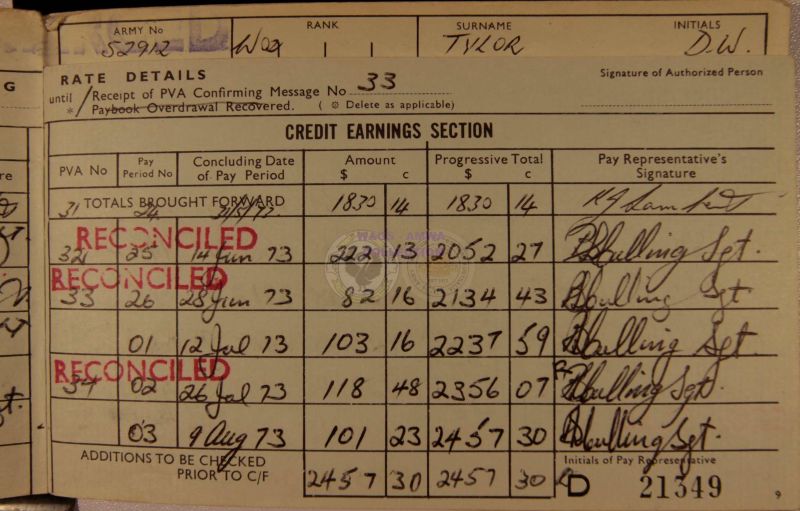 ARMY No RANK SURNAME INITIALS
52912 WO2 TYLOR D.W.
G
RATE DETAILS Signature of Authorized Person
until / Receipt of PVA Confirming Message No 33
* Paybook Overdrawal Recovered. ( * Delete as applicable)
CREDIT EARNINGS SECTION
PVA No Pay Period No Concluding Date of Pay Period Amount $ c Progressive Total $ c Pay Representative's Signature
TOTALS BROUGHT FORWARD 1830 14 1830 14
31 24 31/5/73
RECONCILED
32 25 14 Jun 73 222 13 2052 27 Bulling Sgt.
RECONCILED
33 26 28 Jun 73 82 16 2134 43 Bulling Sgt
01 12 Jul 73 103 16 2237 59 Bulling Sgt.
RECONCILED
34 02 26 Jul 73 118 48 2356 07 Bulling Sgt.
03 9 Aug 73 101 23 2457 30 Bulling Sgt.
ADDITIONS TO BE CHECKED PRIOR TO C/F 2457 30 2457 30 Initials of Pay Representative
D 21349
9